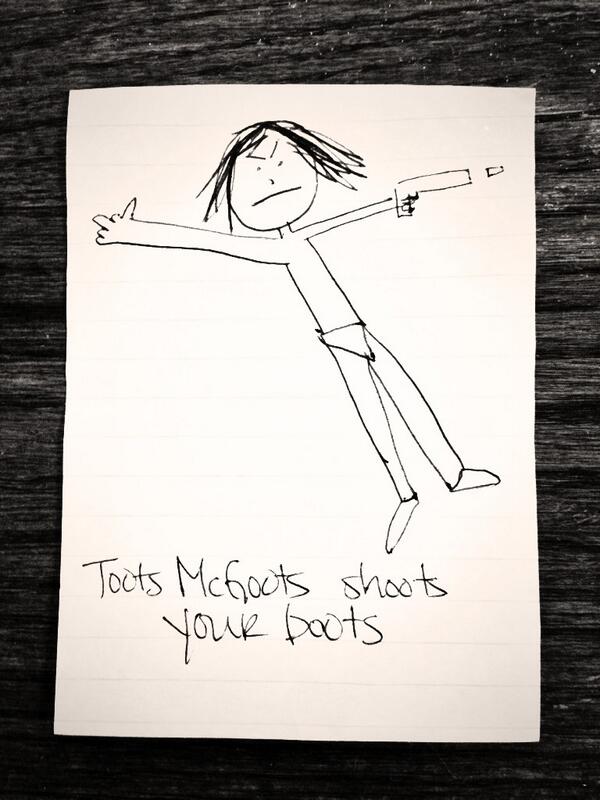 Toots McGoots shoots
your boots